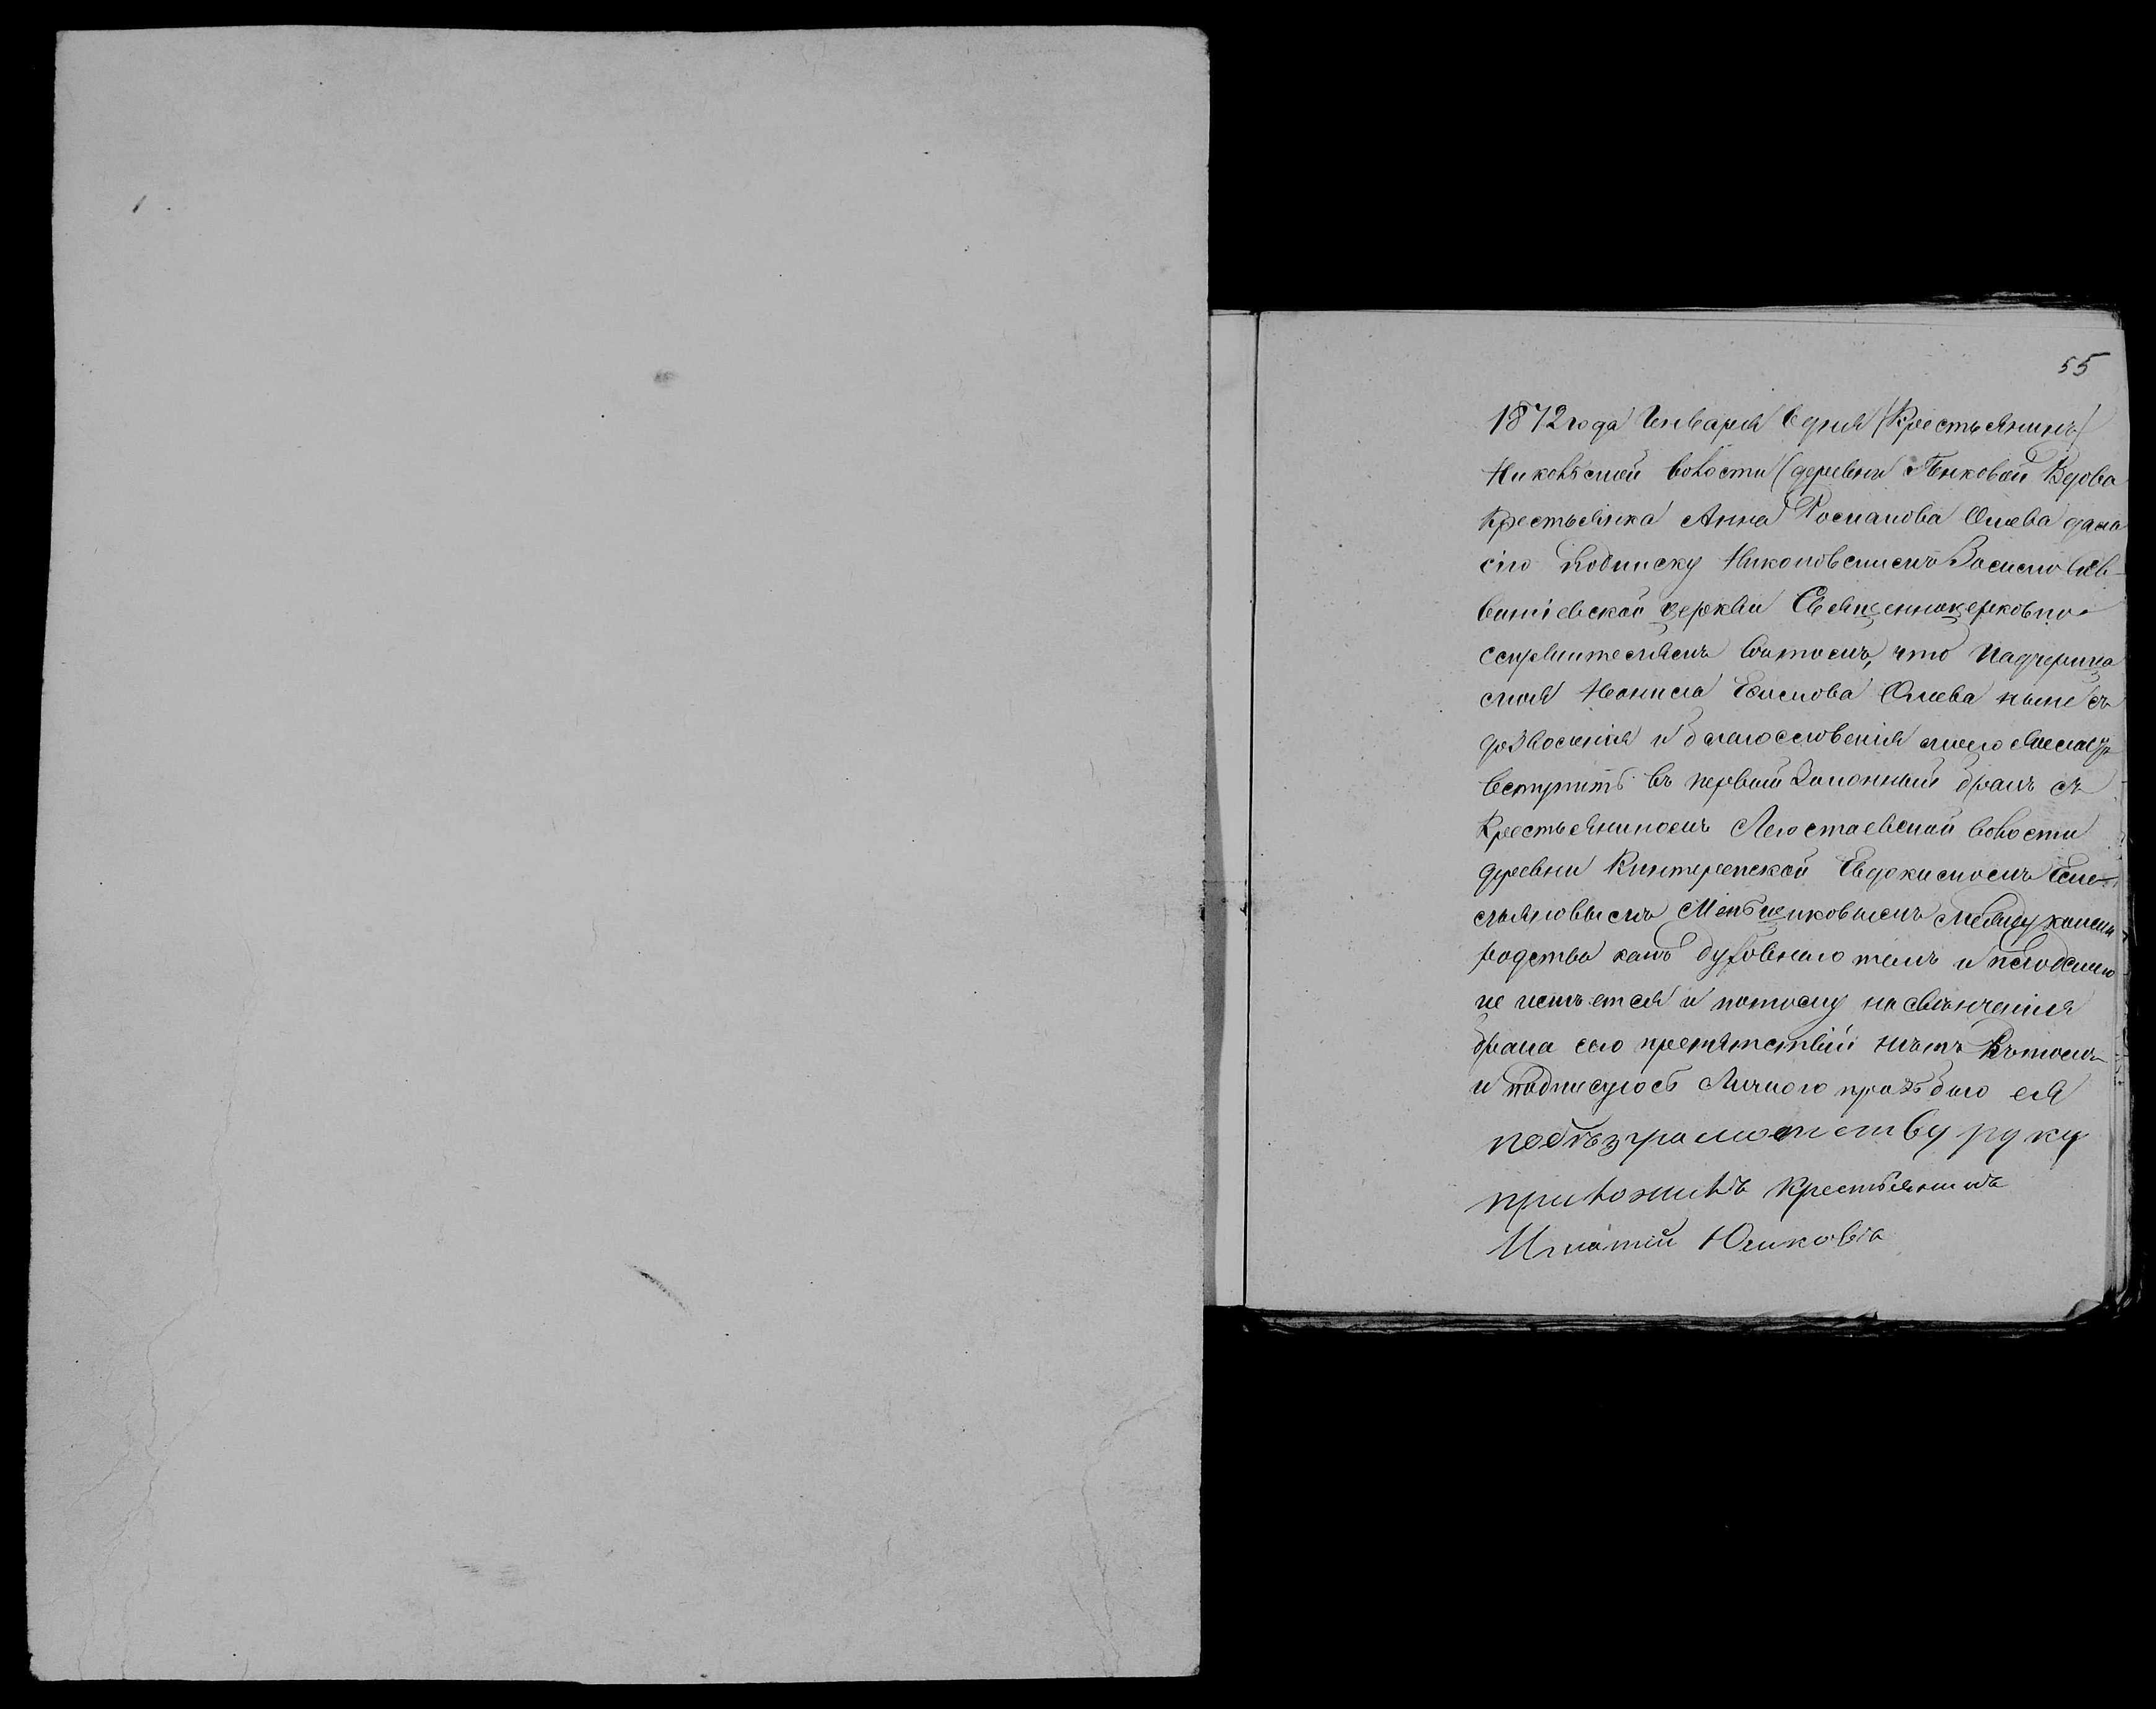 55
1872 года Генваря 6 дня (Крестьянинъ)
волости (деревни Пѣнковой Вдова
Крестьянка Анна Романова дала
сію подписку Никоновскимъ
церкви Священноцерковно
служителямъ въ томъ, что падчерица
моя Неонила Ефимова нынѣ съ
дозволенія и благословенія моего
вступить въ первый Законный бракъ съ
Крестьяниномъ Легостаевской волости
деревни Кинтерепской Евдокимомъ Еме-
льяновымъ Меньщиковымъ Между коими
родства какъ духовнаго такъ и плотскаго
не имѣется и потому на свѣнчанія
брака сего препятствій нѣтъ Въ томъ
и подписуюсь Личною прозьбою ея
побѣзграмотству руку
приложилъ Крестьянинъ
Игнатій Юликовъ